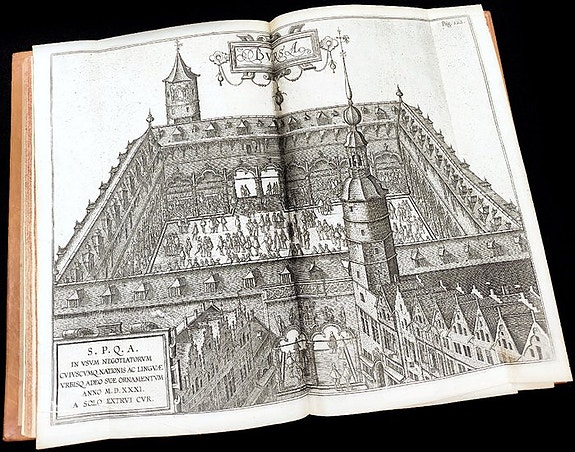 BVRSA
S. P. Q. A.
IN VSVM NEGOTIATORVM
CVIVSCVMQ. NATIONIS AC LINGVÆ
VRBISQ. ADEO SVÆ ORNAMENTVM
ANNO M.D.XXXI.
A SOLO EXTRVI CVR.